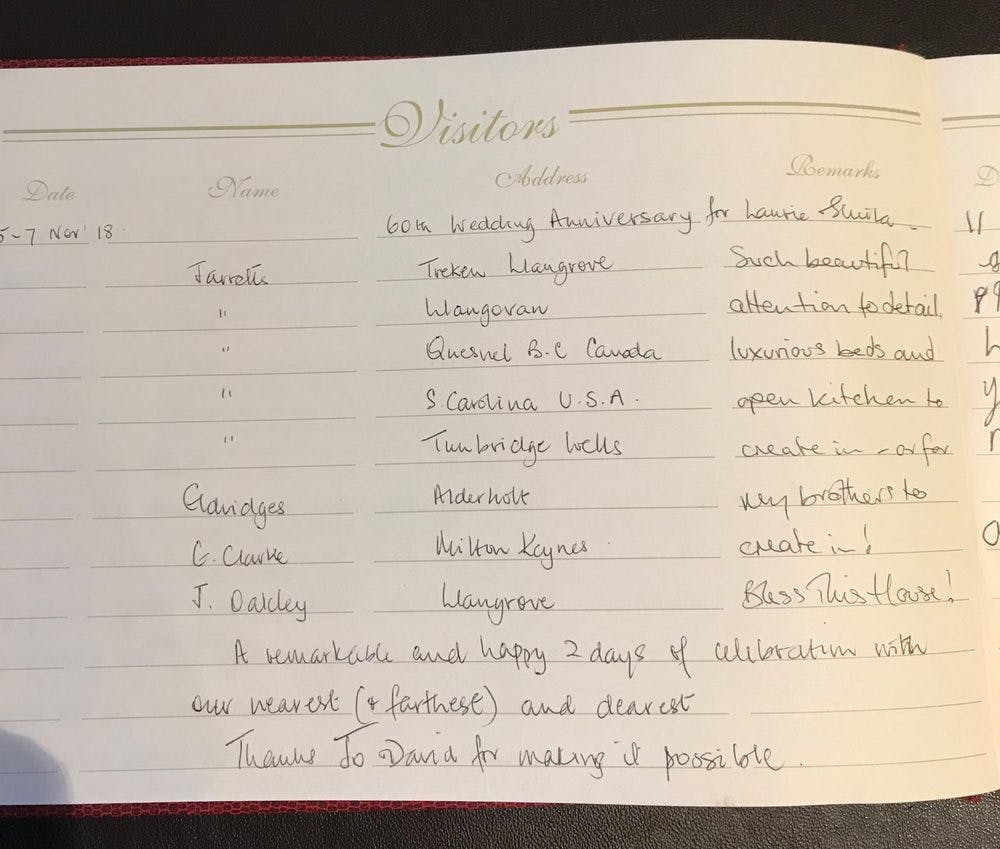 Visitors
Date Name Address Remarks
5-7 Nov' 18 60th Wedding Anniversary for Laurie
Jarretts Treken Llangrove Such beautiful
" Llangovan attention to detail,
" Quesnel B.C Canada luxurious beds and
" S. Carolina U.S.A. open kitchen to
" Tunbridge Wells create in - or for
Eldridges Alderholt my brothers to
G. Clarke Milton Keynes create in!
J. Oakley Llangrove Bless This House!
A remarkable and happy 2 days of celebration with
our nearest (& farthest) and dearest
Thanks To David for making it possible.